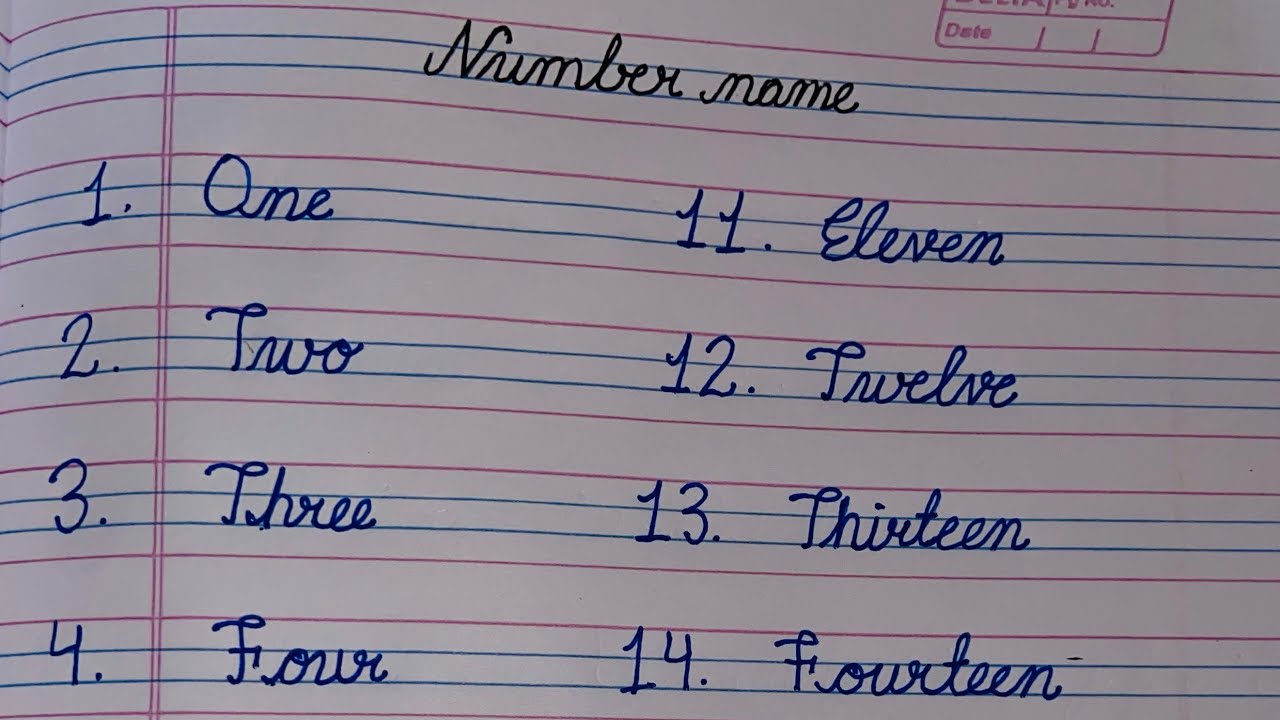 Date
Number name
1. One 11. Eleven
2. Two 12. Twelve
3. Three 13. Thirteen
4. Four 14. Fourteen